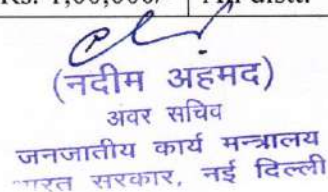 Rs. 1,00,000/
(नदीम अहमद)
अवर सचिव
जनजातीय कार्य मन्त्रालय
भारत सरकार, नई दिल्ली